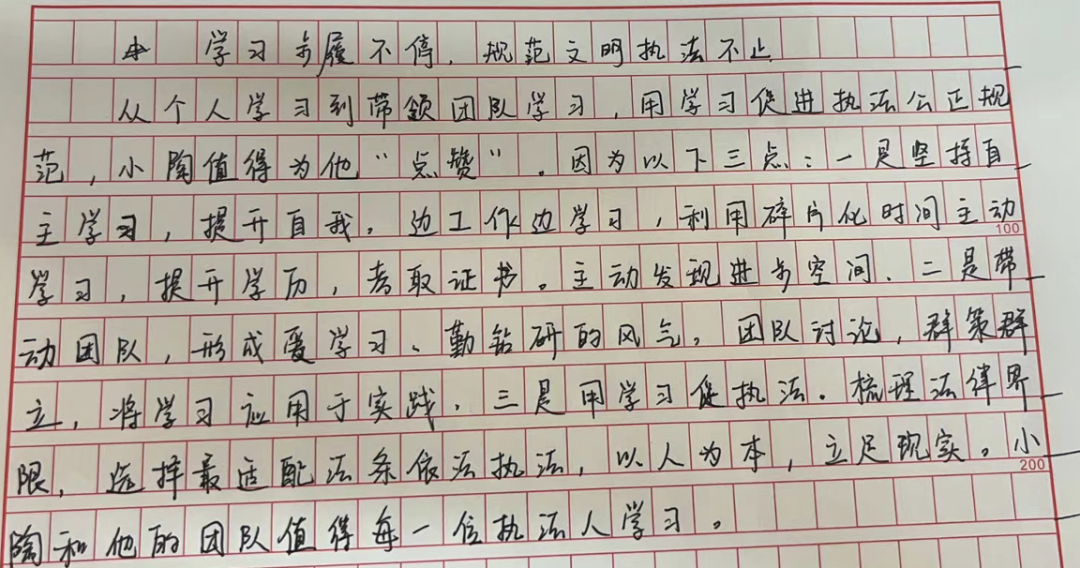 学习步履不停，规范文明执法不止
从个人学习到带领团队学习，用学习促进执法公正规
范，小陶值得为他“点赞”。因为以下三点：一是坚持自
主学习，提升自我。边工作边学习，利用碎片化时间主动
100
学习，提升学历，考取证书。主动发现进步空间。二是带
动团队，形成爱学习、勤钻研的风气。团队讨论，群策群
立，将学习应用于实践。三是用学习促执法。梳理法律界
限，选择最适配法条依法执法，以人为本，立足现实。小
200
陶和他的团队值得每一位执法人学习。